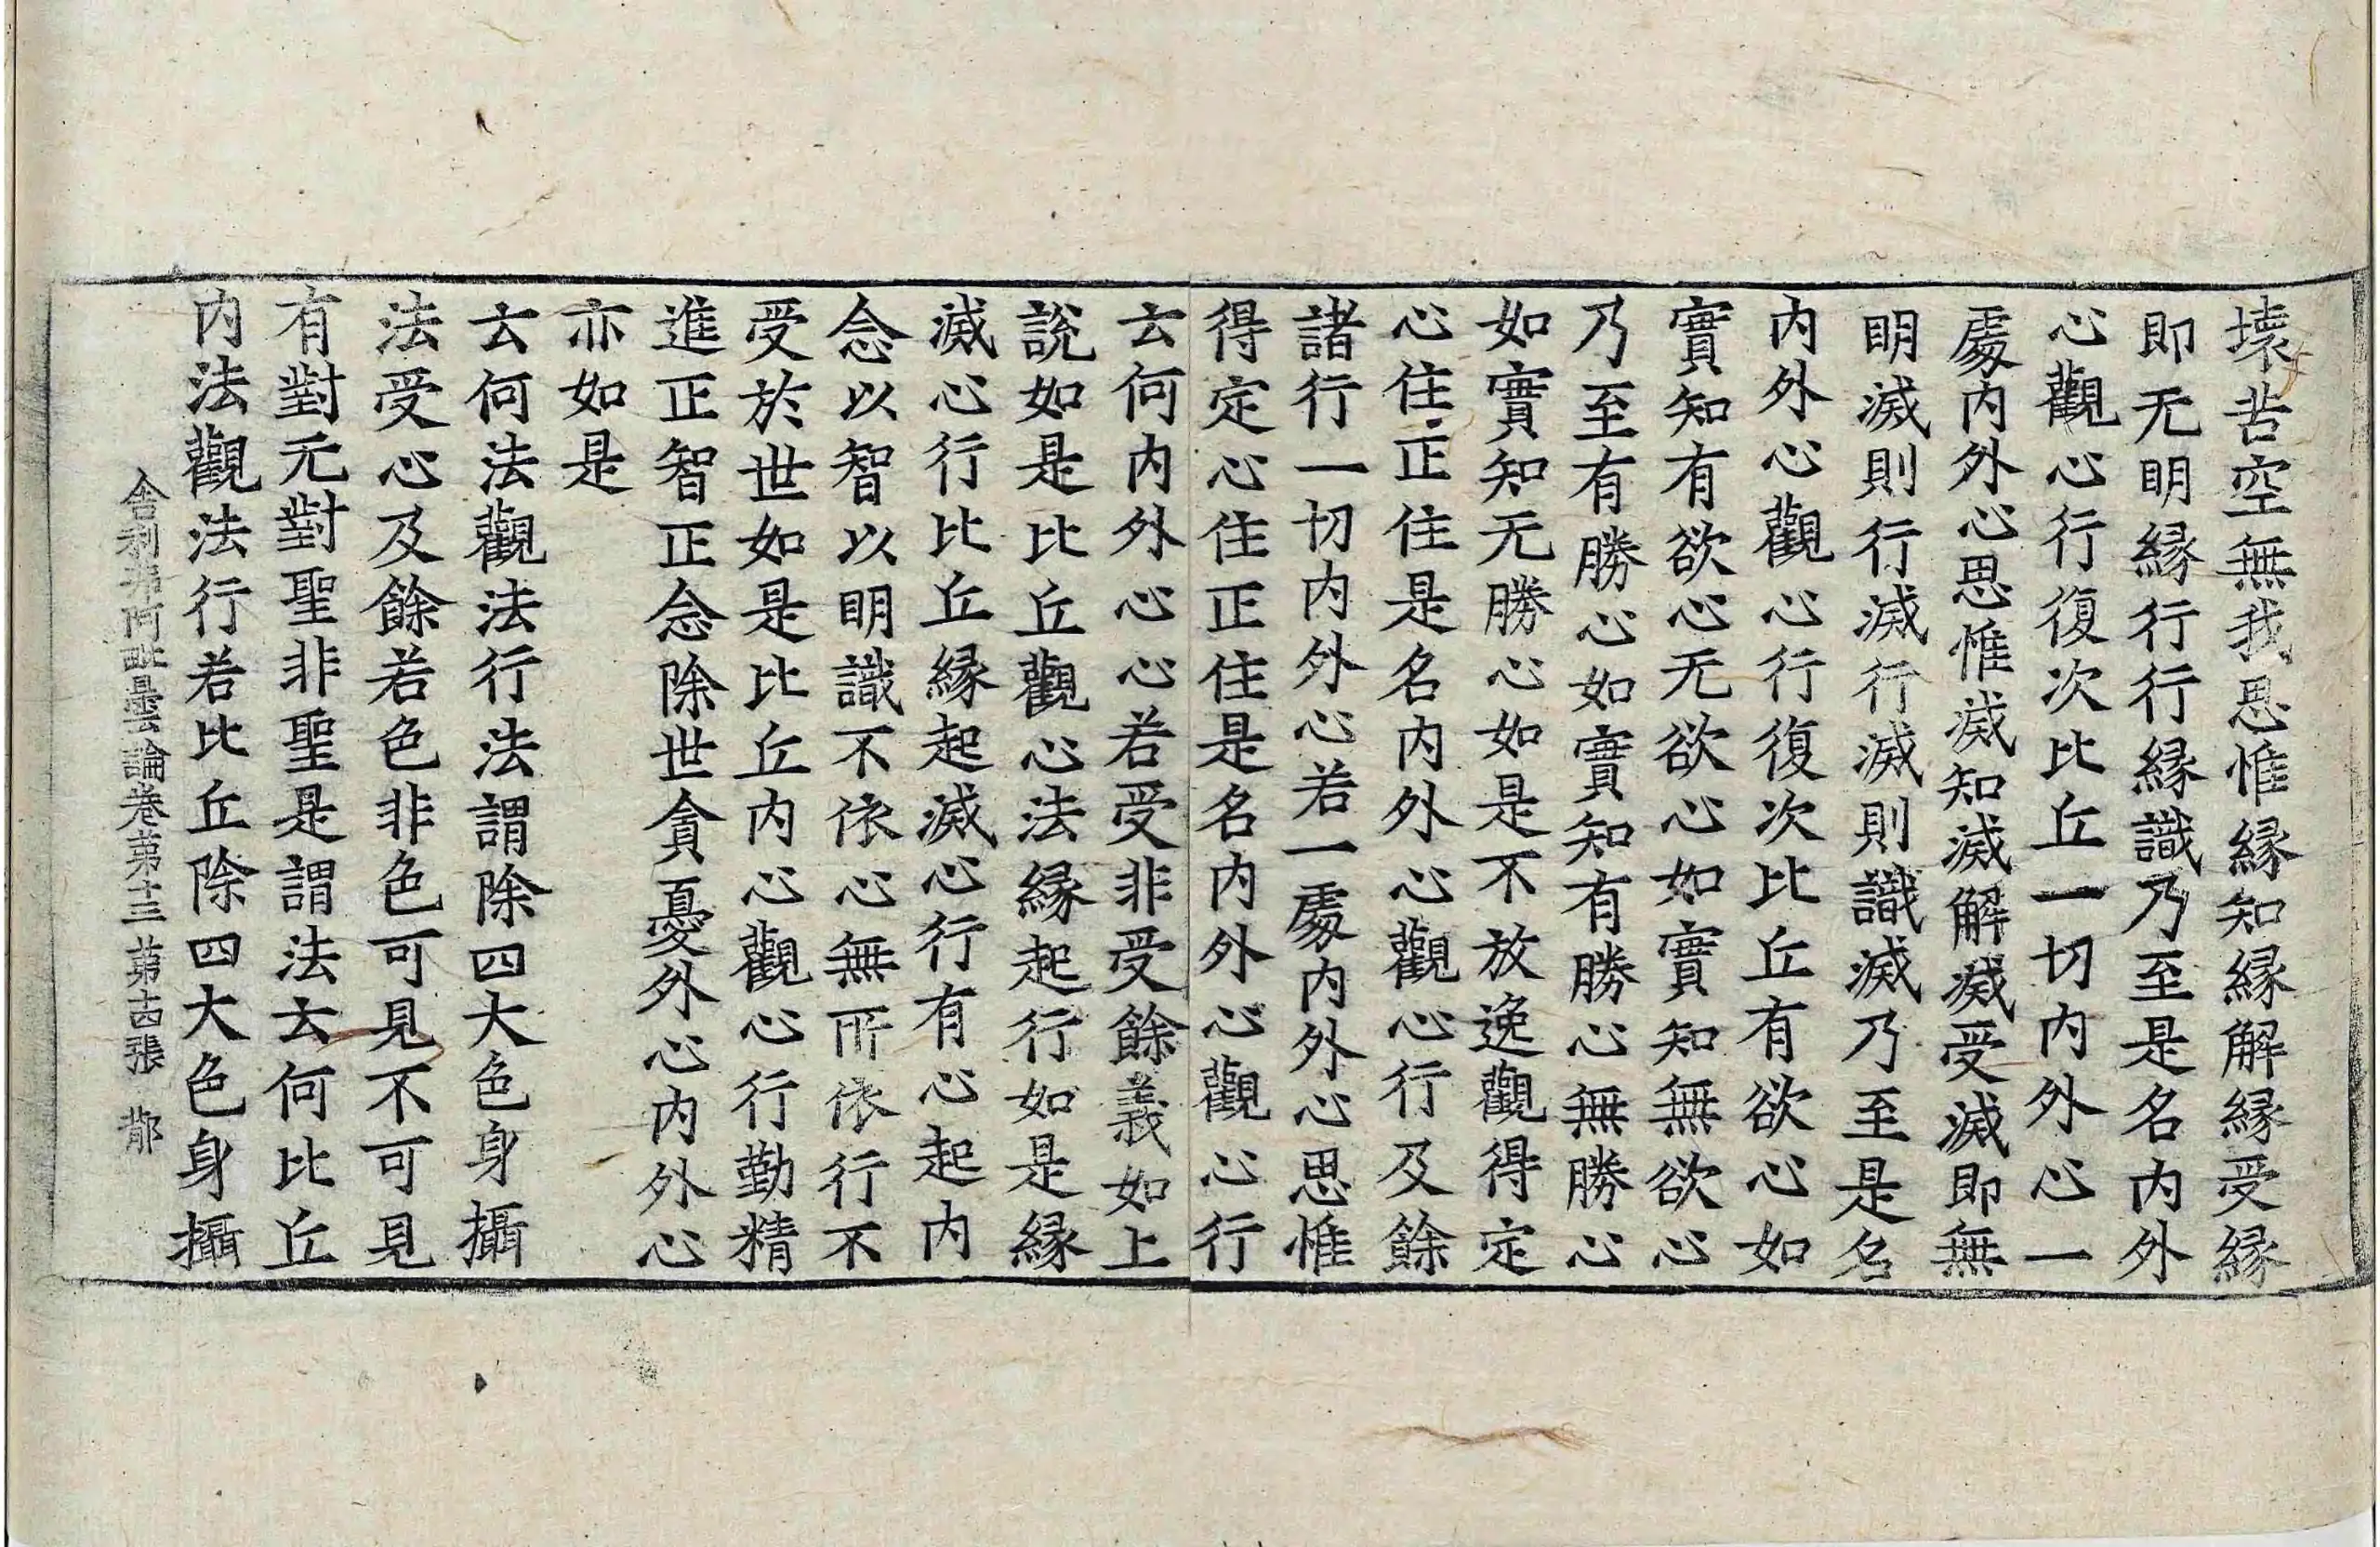 壞苦空無我思惟縁知縁解縁受縁
即无明縁行行縁識乃至是名內外
心觀心行復次比丘一切內外心一
處內外心思惟滅知滅解滅受滅即無
明滅則行滅行滅則識滅乃至是名
內外心觀心行復次比丘有欲心如
實知有欲心无欲心如實知無欲心
乃至有勝心如實知有勝心無勝心
如實知无勝心如是不放逸觀得定
心住正住是名內外心觀心行及餘
諸行一切內外心若一處內外心思惟
得定心住正住是名內外心觀心行
云何內外心心若受非受餘義如上
說如是比丘觀心法縁起行如是縁
滅心行比丘縁起滅心行有心起內
念以智以明識不依心無所依行不
受於世如是比丘內心觀心行勤精
進正智正念除世貪憂外心內外心
亦如是
云何法觀法行法謂除四大色身攝
法受心及餘若色非色可見不可見
有對无對聖非聖是謂法云何比丘
內法觀法行若比丘除四大色身攝
舍利弗阿毗曇論卷第十三 第十四張